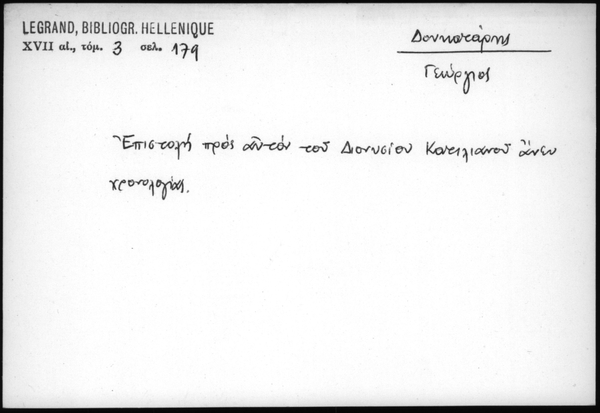 LEGRAND, BIBLIOGR. HELLENIQUE
XVII αἰ., τόμ. 3 σελ. 179
Δουκατάρης
Γεώργιος
Ἐπιστολή πρός αὐτόν τοῦ Διονυσίου Κατιλιανοῦ ἄνευ
χρονολογίας.